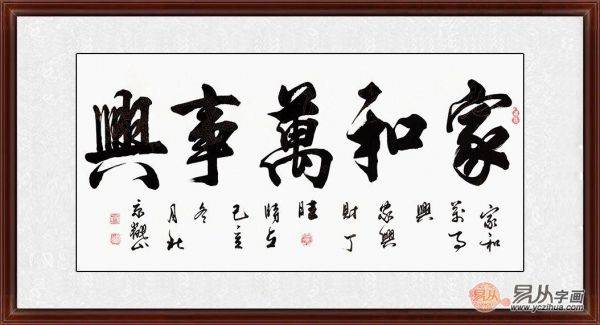 家和萬事興
家和
萬事
興
家興
財丁
旺
時在
己亥
冬
月於
京
易从字画
www.yczihua.com